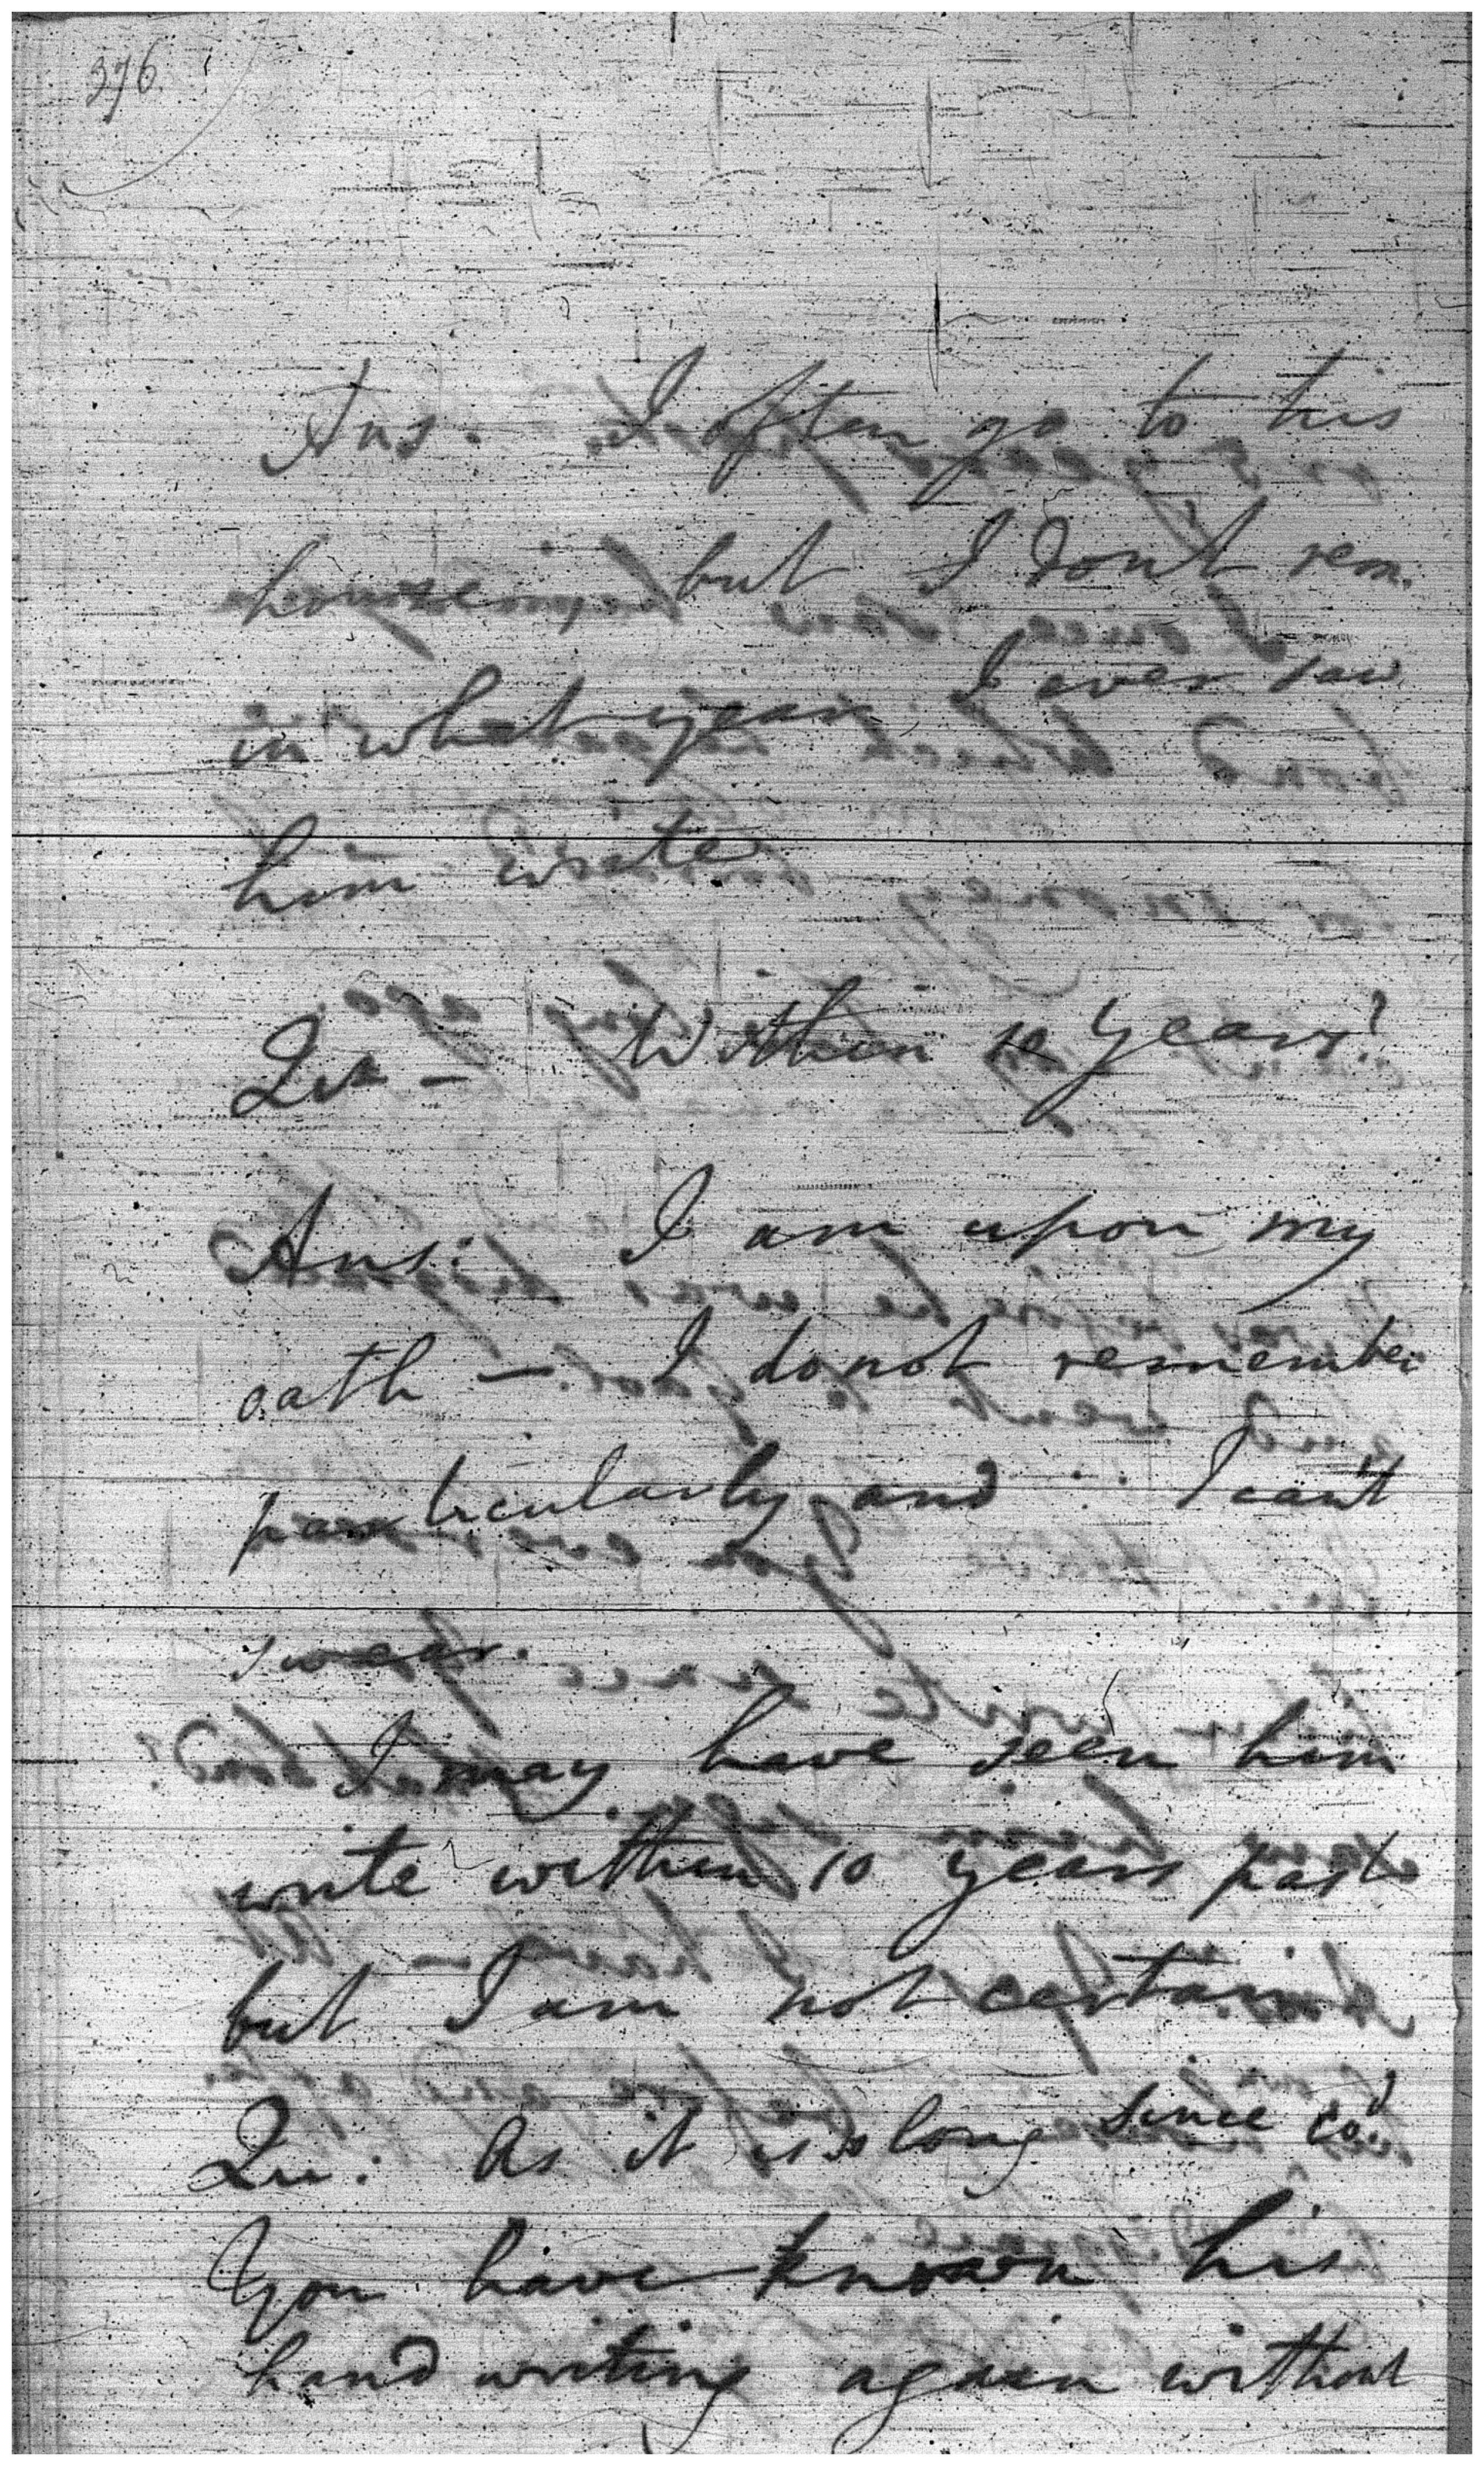 376.
Ans. I often go to his
house but I don't rem.
in what year I ever saw
him write
Qu - Within 10 years?
Ans: I am upon my
oath — I do not remember
particularly and I can't
swear.
I may have seen him
write within 10 years past
but I am not certain
Qu: As it is so long since co'd
You have known his
hand writing again without